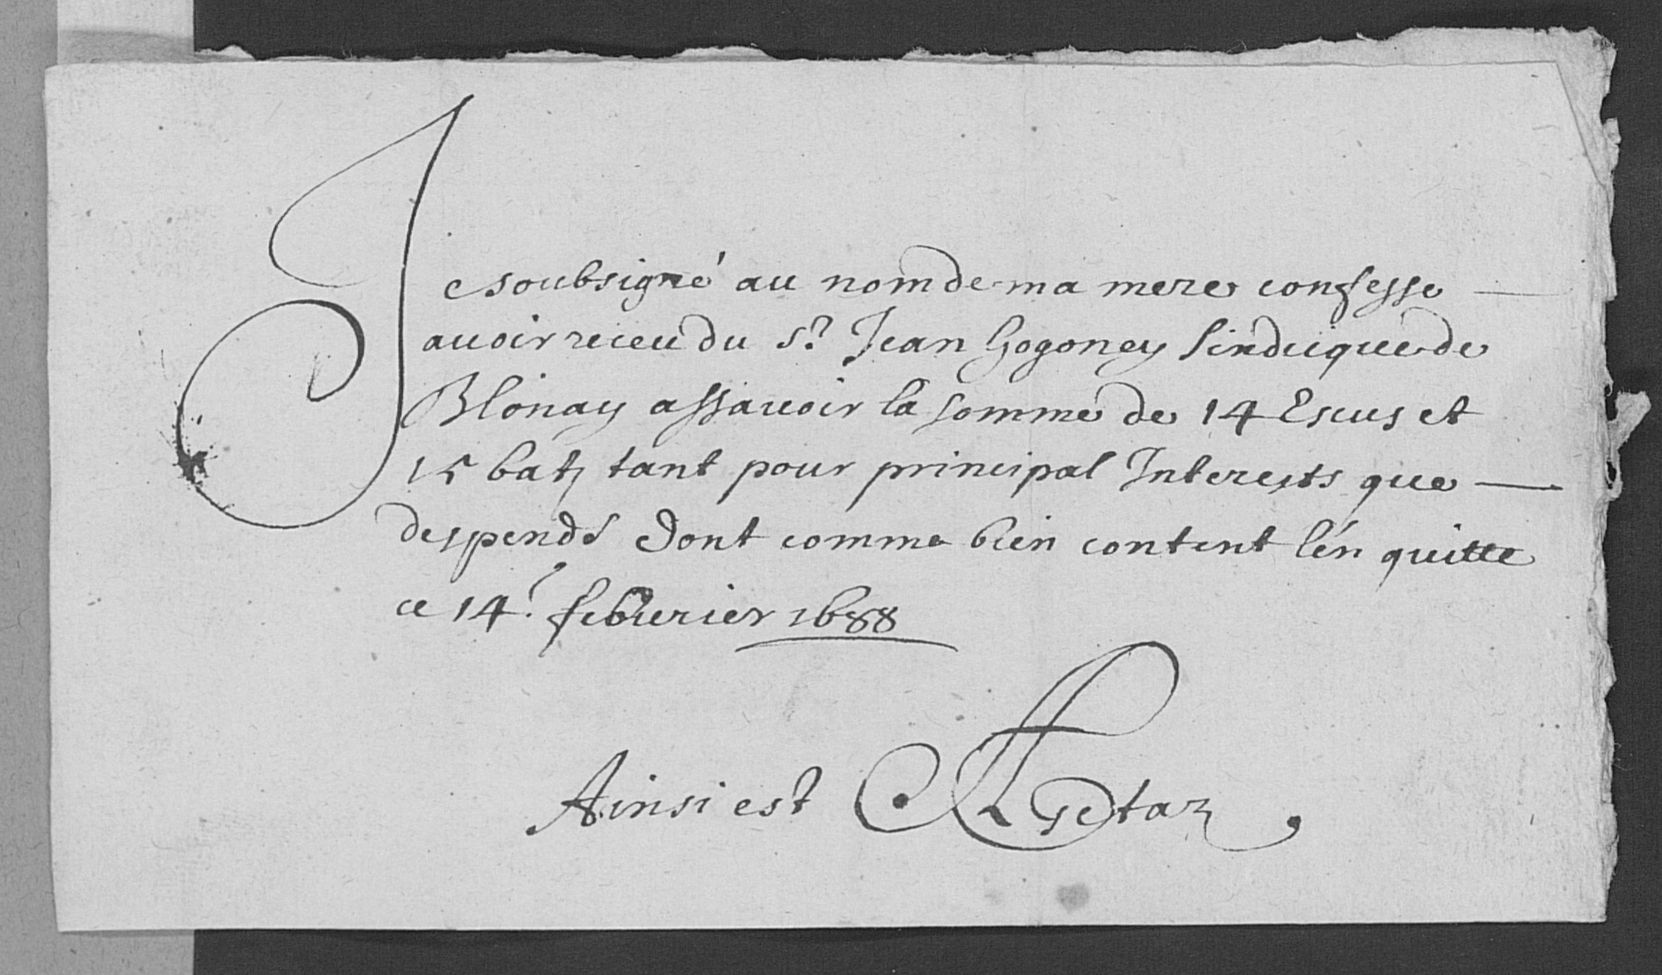 Je soubsigné au nom de ma mere confesse
avoir receu du Sr. Jean Gogoney Sindicque de
Blonay assavoir la somme de 14 Escus et
15 batz tant pour principal Interests que
despends dont comme bien content l'en quitte
ce 14e. febvrier 1688
Ainsi est Getaz